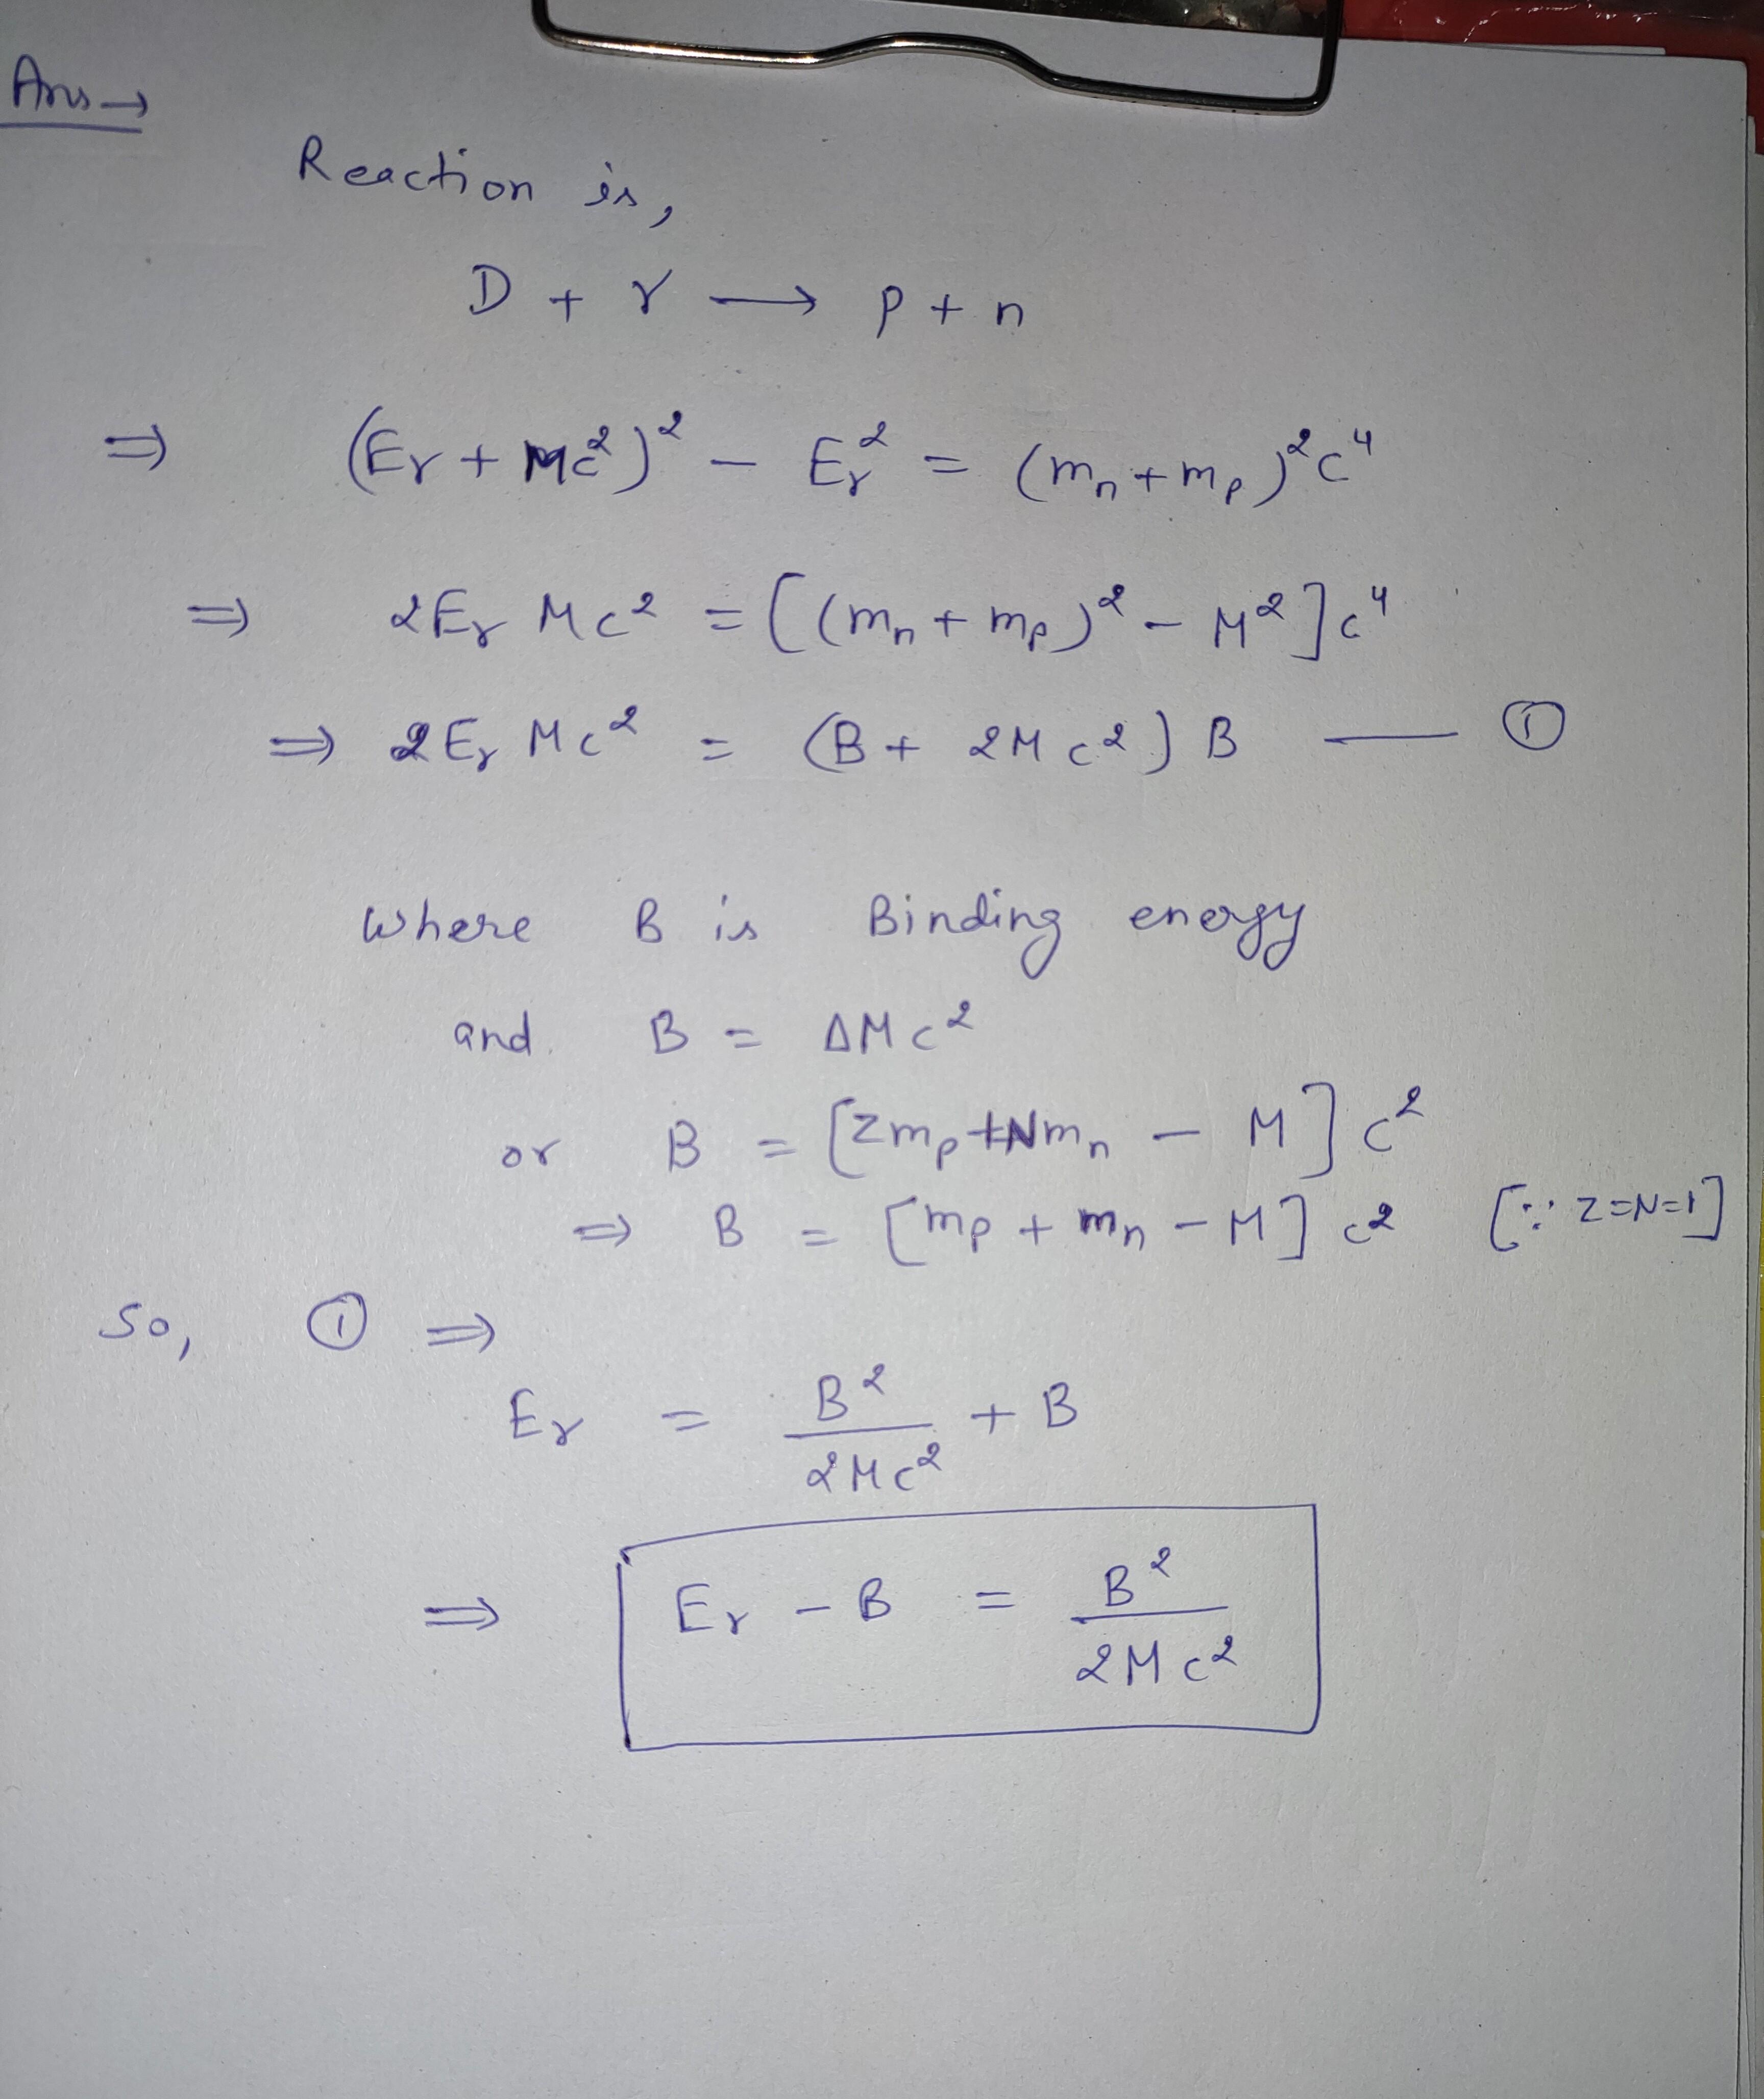 Ans →
Reaction is,
D + γ ⟶ p + n
⇒ (Eγ + Mc²)² − Eγ² = (mₙ + mₚ)²c⁴
⇒ 2Eγ Mc² = [(mₙ + mₚ)² − M²]c⁴
⇒ 2Eγ Mc² = (B + 2Mc²) B — ①
Where B is Binding energy
and B = ΔMc²
or B = [Zmₚ + Nmₙ − M] c²
⇒ B = [mₚ + mₙ − M] c² [∵ Z=N=1]
So, ① ⇒
Eγ = B²/2Mc² + B
⇒ Eγ − B = B²/2Mc²